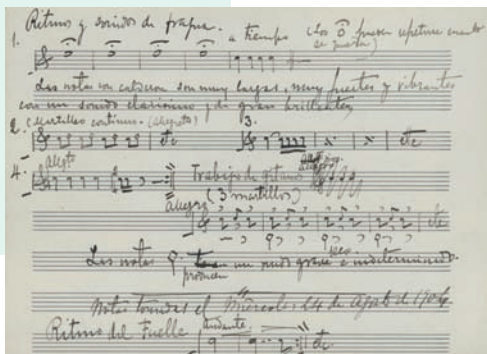 Ritmo y sonidos de fragua.
1.
a tiempo (Los pueden repetirse cuanto
se quiera)
Las notas con calderon son muy largas, muy fuertes y vibrantes
con un sonido clarísimo y de gran brillantez
2. (Martilleo continuo. (Allegretto) 3.
etc etc
4. Allegro
Trabajo de gitano
(3 martillos)
Allegro
etc
Las notas producen un ruido grave e indeterminado.
Notas tomadas el Miércoles 24 de Agosto de 1904
Ritmo del Fuelle
Andante
etc.